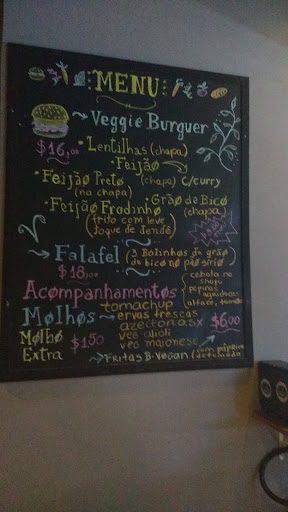 MENU
→ Veggie Burguer
$16,00
• Lentilhas (chapa)
• Feijão
• Feijão Preto (chapa) c/curry
(na chapa)
• Grão de Bico
(chapa)
• Feijão Frodinho
(frito com leve
toque de dendê)
→ Falafel (3 Bolinhos de grão
de bico no pão sírio
$18,00
Acompanhamentos
cebola no
shoyu
pepinos
agridoces
alface, tomate
Molhos → tomachup
ervas frescas
azeitonas
veg alioli
veg maionese
Molho
Extra
$1,50
→ Fritas B-Vegan $6,00
(com páprica
defumada